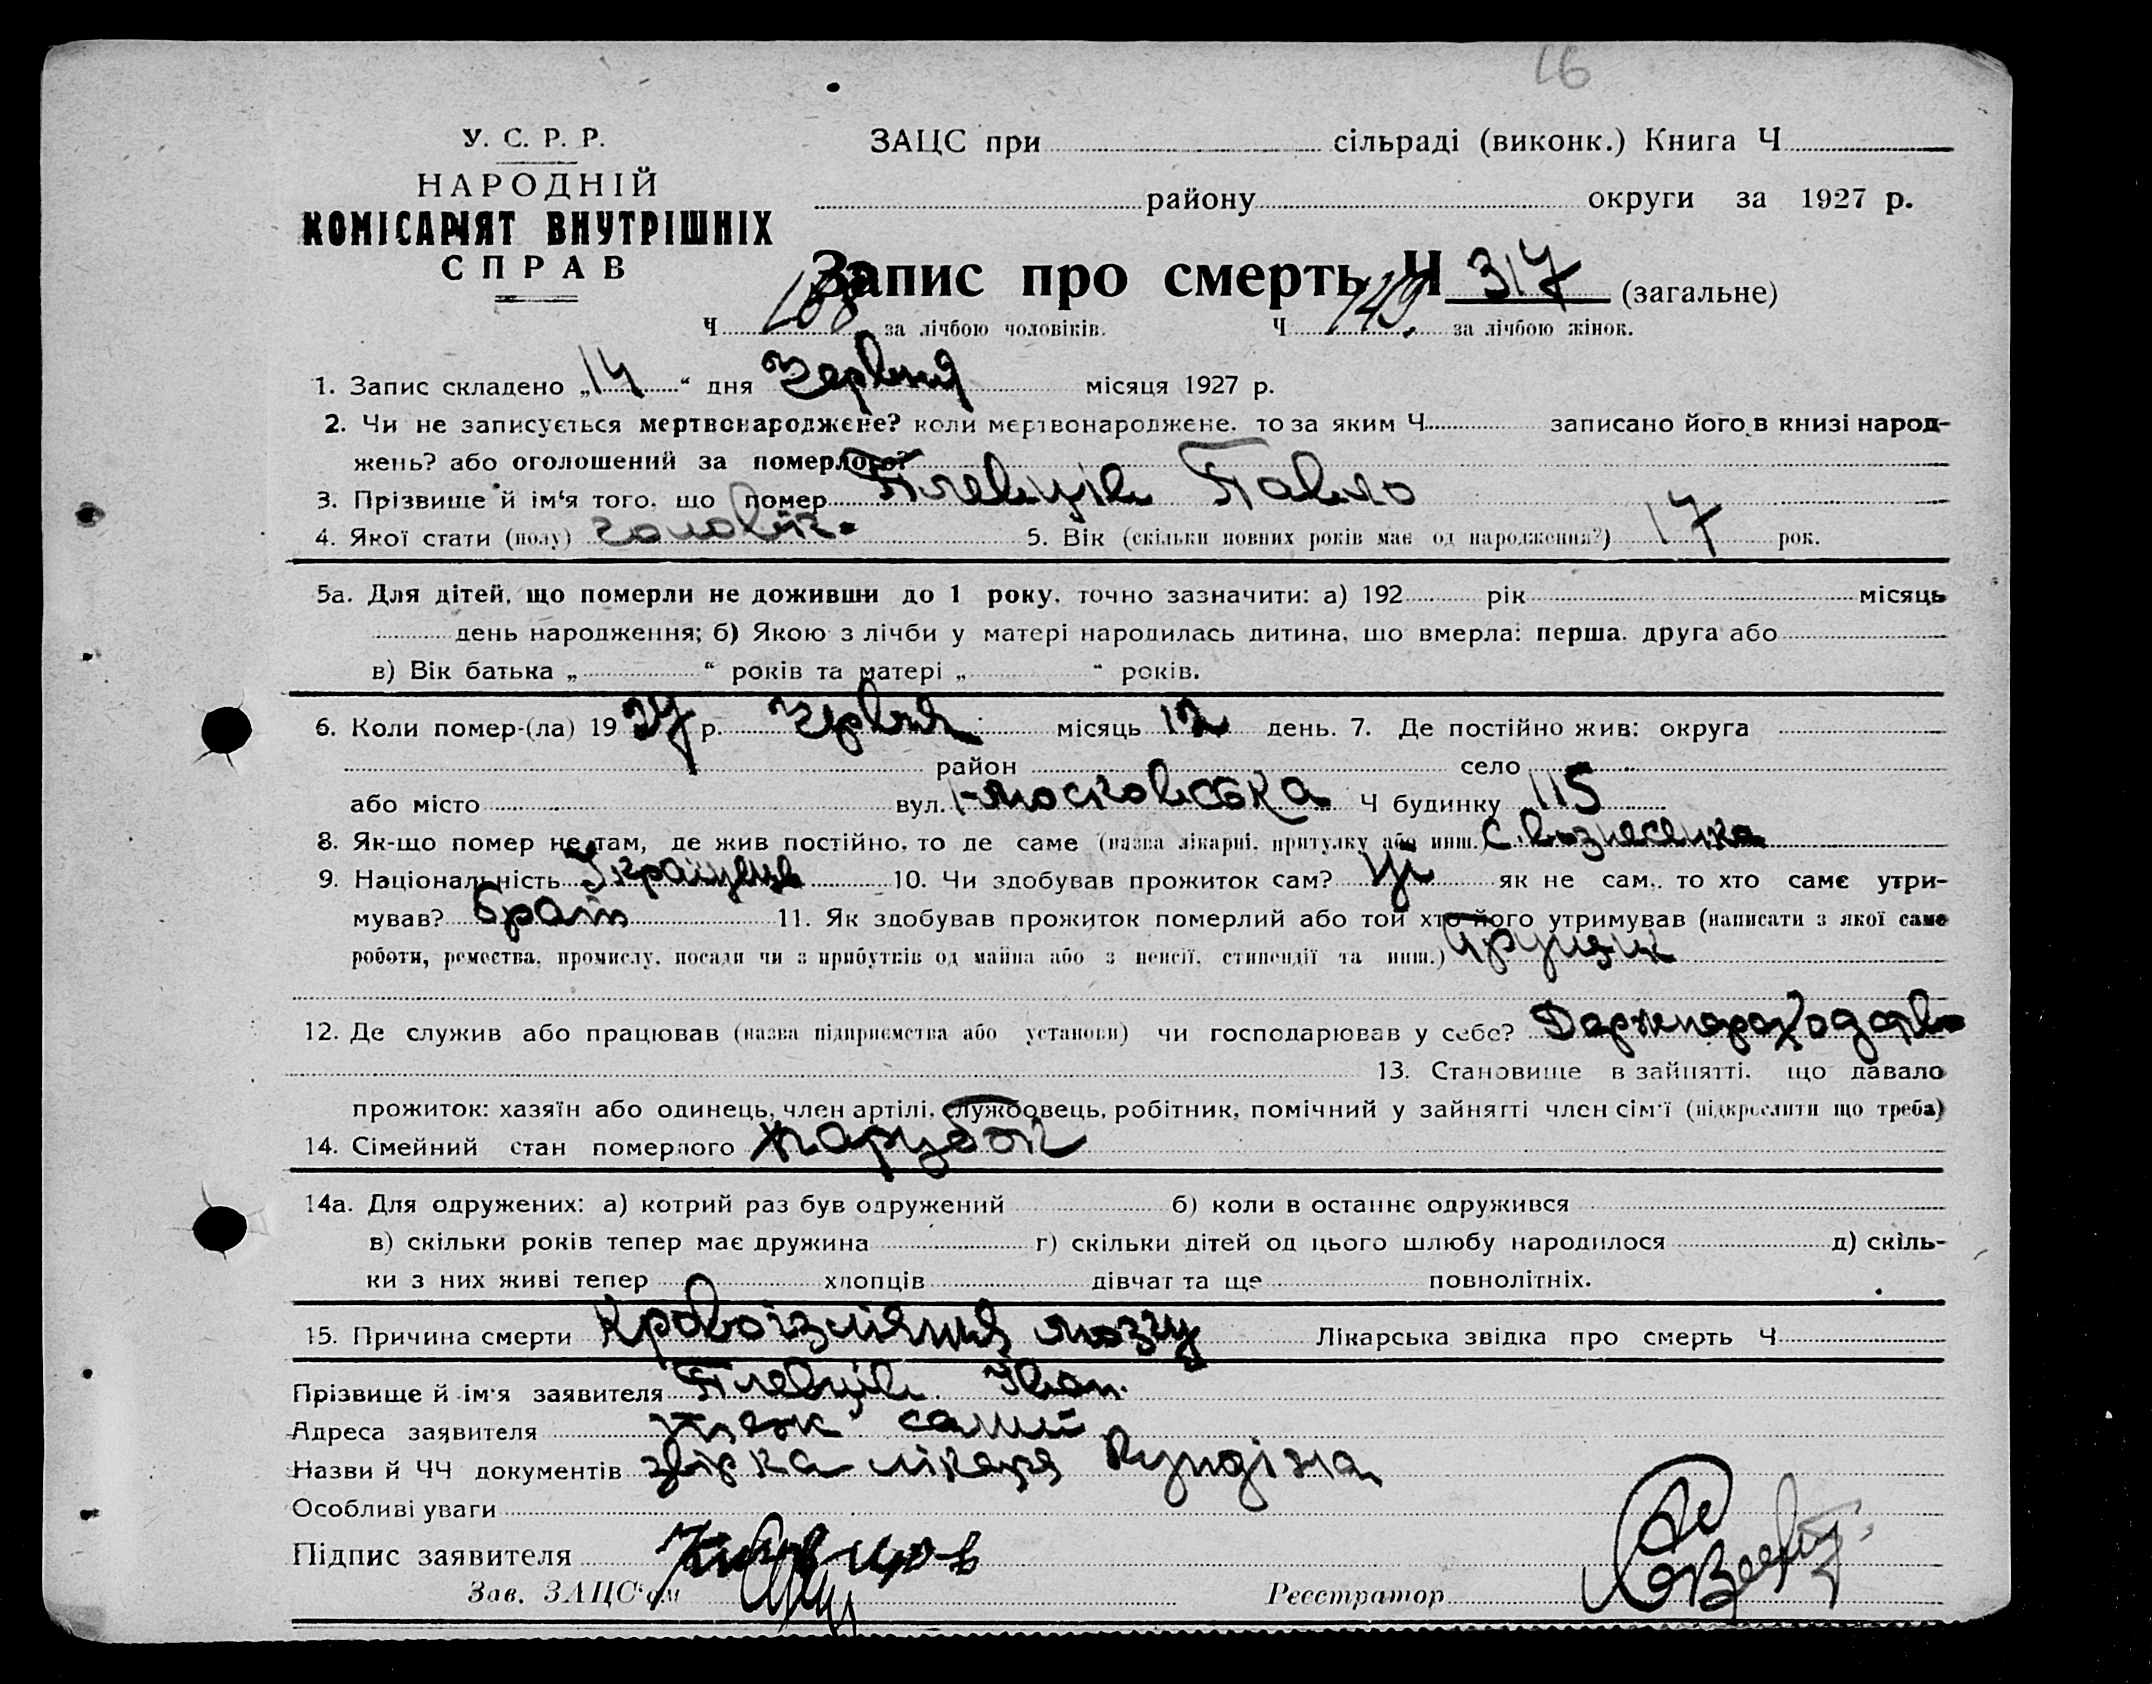 16
У. С. Р. Р.
НАРОДНІЙ
КОМІСАРІЯТ ВНУТРІШНІХ
СПРАВ
ЗАЦС при сільраді (виконк.) Книга Ч
району округи за 1927 р.
Запис про смерть Ч 317 (загальне)
Ч 168 за лічбою чоловіків. Ч 149. за лічбою жінок.
1. Запис складено „14“ дня Червня місяця 1927 р.
2. Чи не записується мертвонароджене? коли мертвонароджене, то за яким Ч записано його в книзі народ-
жень? або оголошений за померлого?
3. Прізвище й ім‘я того, що помер Плевців Павло
4. Якої стати (полу) чоловіч. 5. Вік (скільки повних років має од народження?) 17 рок.
5а. Для дітей, що померли не доживши до 1 року, точно зазначити: а) 192 рік місяць
день народження; б) Якою з лічби у матері народилась дитина, що вмерла: перша, друга або
в) Вік батька „ “ років та матері „ “ років.
6. Коли помер-(ла) 1927 р. Червня місяць 12 день. 7. Де постійно жив: округа
район село
або місто вул. 1-Московська Ч будинку 115
8. Як-що помер не там, де жив постійно, то де саме (назва лікарні, притулку або инш.) с. Вознесенка
9. Національність Українець 10. Чи здобував прожиток сам? ні як не сам, то хто саме утри-
мував? брат 11. Як здобував прожиток померлий або той хто його утримував (написати з якої саме
роботи, ремества, промислу, посади чи з прибутків од майна або з пенсії, стипендії та инш.) грузчик
12. Де служив або працював (назва підприємства або установи) чи господарював у себе? Держпароходств
13. Становище в зайнятті, що давало
прожиток: хазяїн або одинець, член артілі, службовець, робітник, помічний у зайнятті член сім'ї (підкреслити що треба)
14. Сімейний стан померлого парубок
14а. Для одружених: а) котрий раз був одружений б) коли в останнє одружився
в) скільки років тепер має дружина г) скільки дітей од цього шлюбу народилося д) скіль-
ки з них живі тепер хлопців дівчат та ще повнолітніх.
15. Причина смерти Кровоізліяння мозгу Лікарська звідка про смерть Ч
Прізвище й ім'я заявителя Плевців Іван
Адреса заявителя теж самий
Назви й ЧЧ документів звірка лікаря
Особливі уваги
Підпис заявителя
Зав. ЗАЦС‘ом Реєстратор